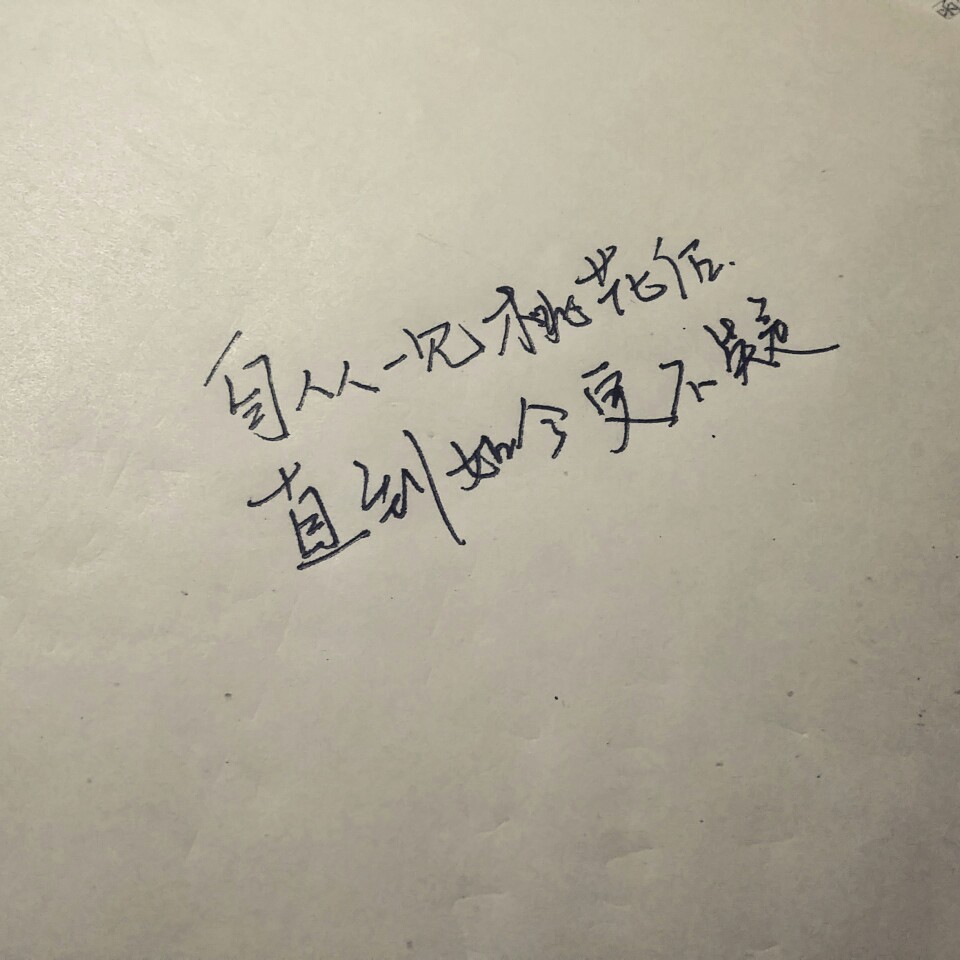 自从一见桃花后
直到如今更不疑